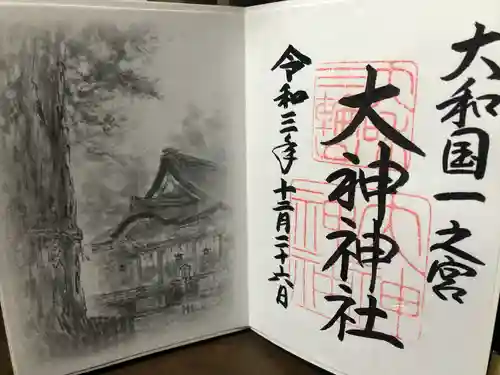 大和国一之宮
大神神社
令和三年十二月二十六日